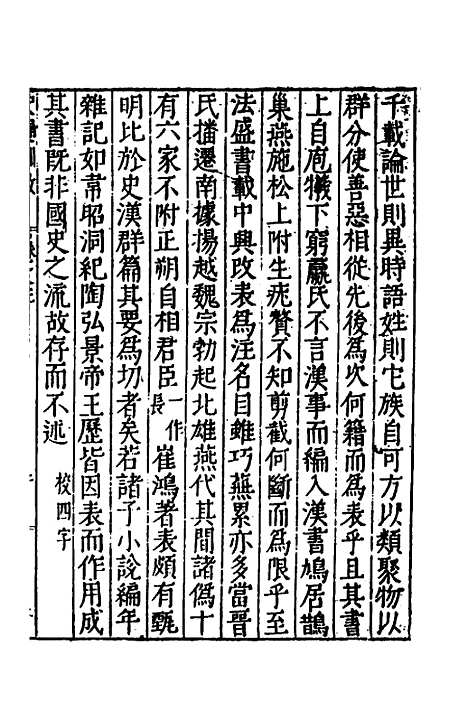 千載論世則異時語姓則它族自可方以類聚物以
群分使善惡相從先後為次何籍而為表乎且其書
上自庖犧下窮嬴氏不言漢事而編入漢書鳩居鵲
巢蔦施松上附生疣贅不知剪截何斷而為限乎至
法盛書載中興改表為注名目雖巧蕪累亦多當晉
氏播遷南據揚越魏宗勃起北雄燕代其間諸偽十
有六家不附正朔自相君臣一作長崔鴻著表頗有甄
明比於史漢群篇其要為切者矣若諸子小說編年
雜記如韋昭洞紀陶弘景帝王歷皆因表而作用成
其書既非國史之流故存而不述 校四字